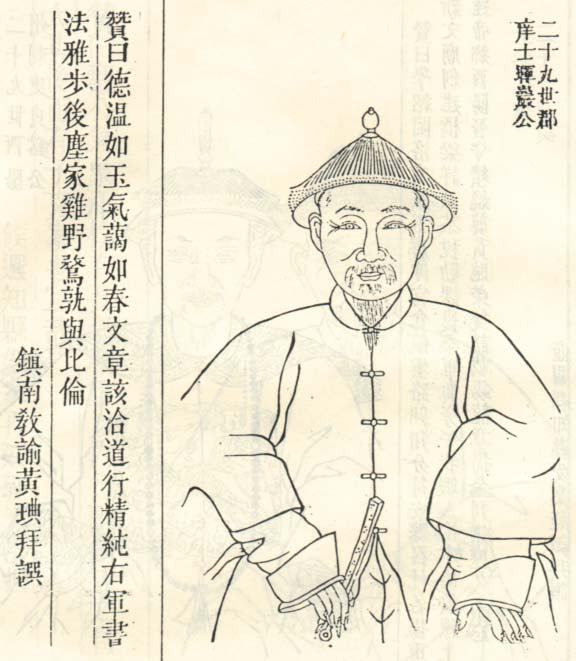 二十九世郡
庠士暉巖公
贊曰德温如玉氣藹如春文章該洽道行精純右軍書
法雅步後塵家雞野鶩孰與比倫
鎮南敎諭黄琠拜譔